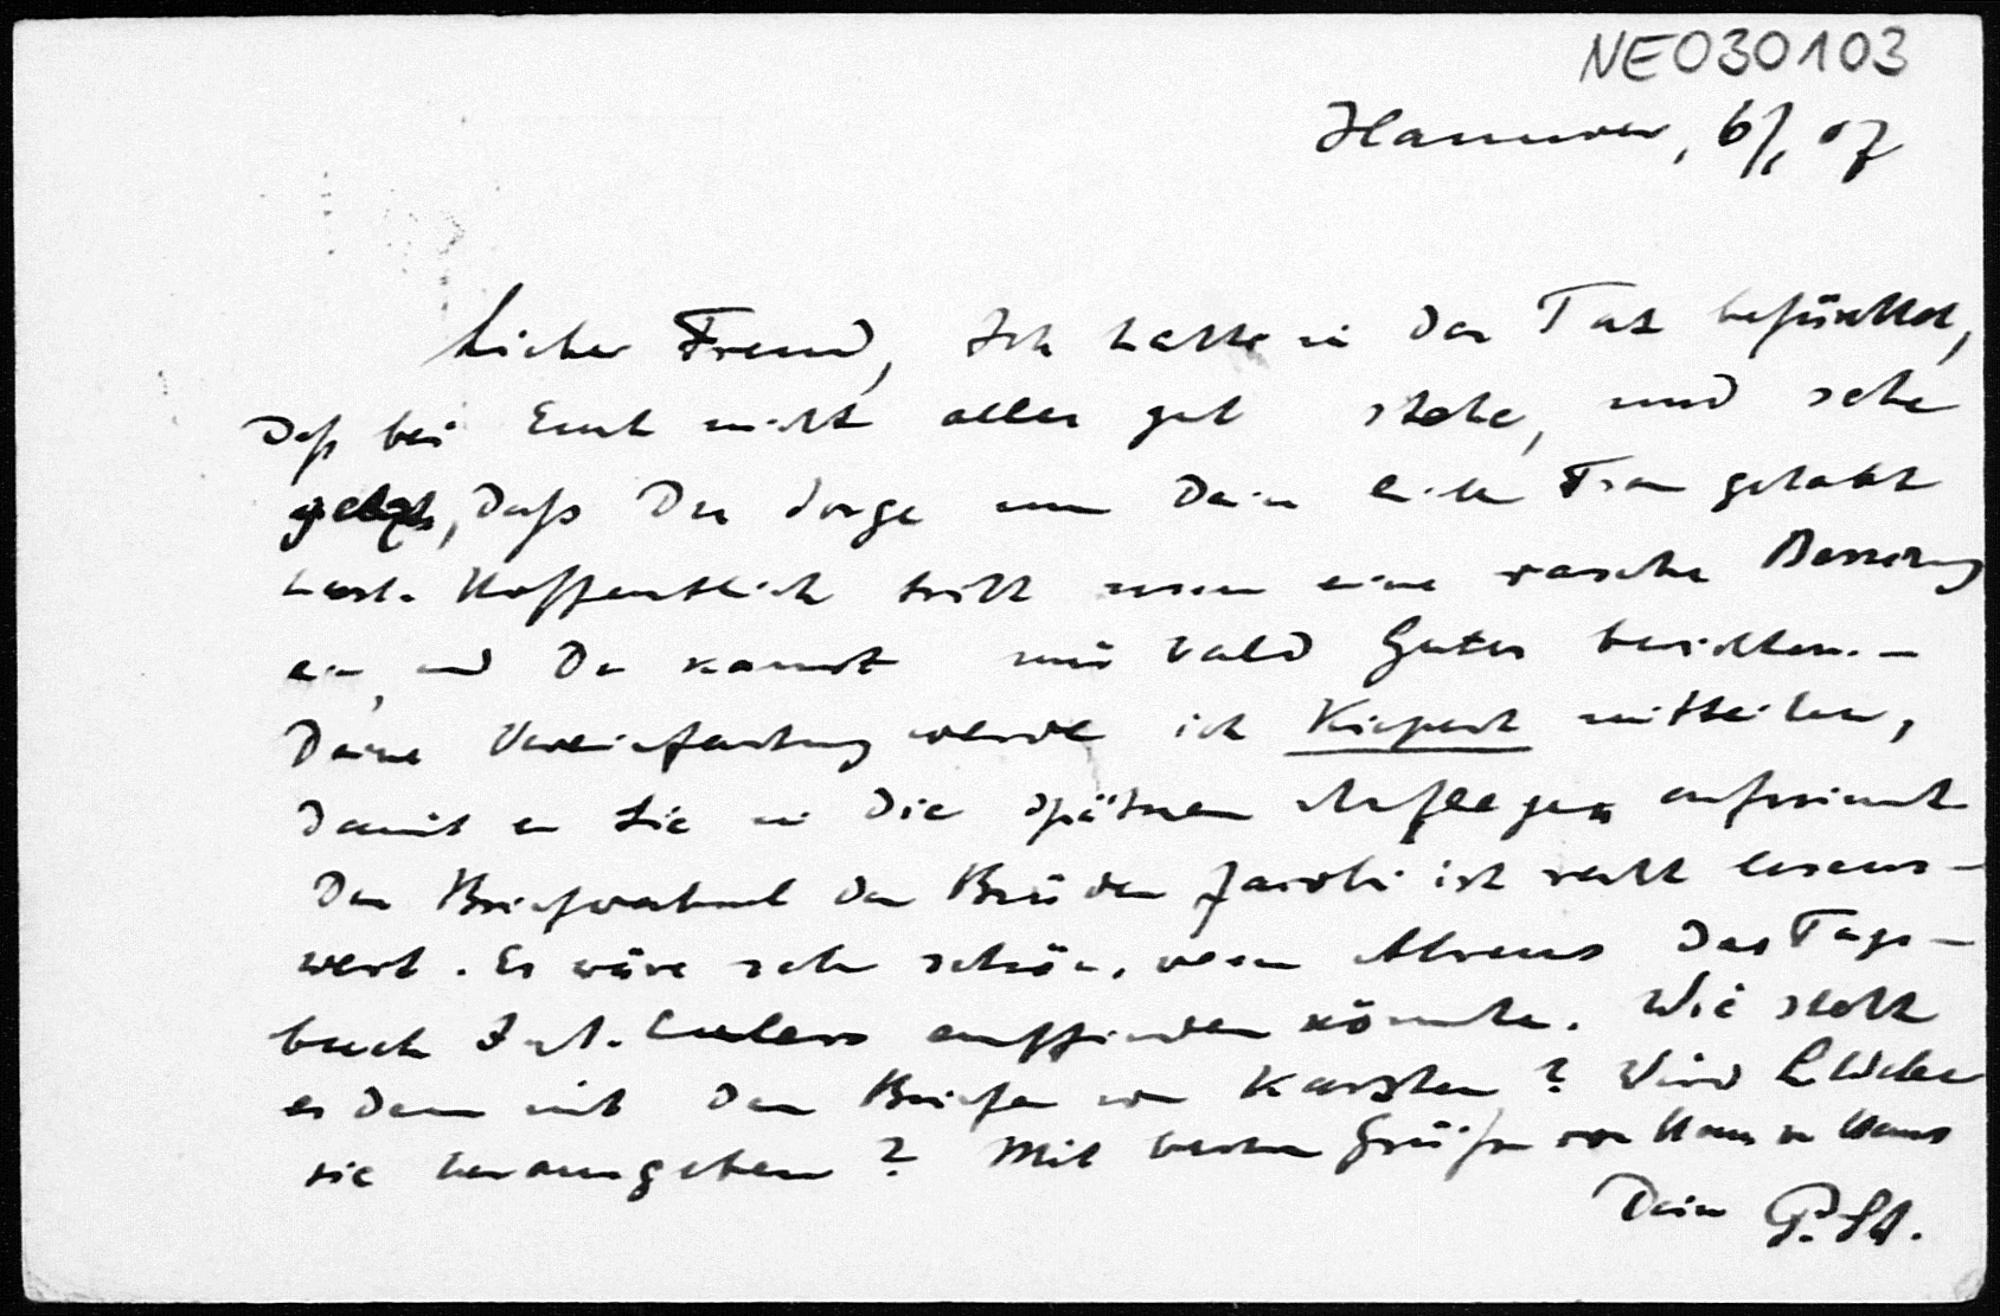 NE030103
Hannover, 6/1 07
Lieber Freund, Ich hatte in der Tat befürchtet,
daß bei Euch nicht alles gut stehe, und sehe
jetzt, daß Du Sorge um Deine liebe Frau gehabt
hast. Hoffentlich tritt nun eine rasche Besserung
ein, und Du kannst mir bald Gutes berichten. –
Deine Vereinfachung werde ich Kiepert mitteilen,
damit er sie in die späteren Auflagen aufnimmt
Der Briefwechsel der Brüder Jacobi ist recht lesens-
wert. Es wäre sehr schön, wenn Ahrens das Tage-
buch Eulers auffinden könnte. Wie steht
es denn mit den Briefen von Karsten? Wird
sie herausgeben? Mit besten Grüßen von Haus zu Haus
Dein P. St.